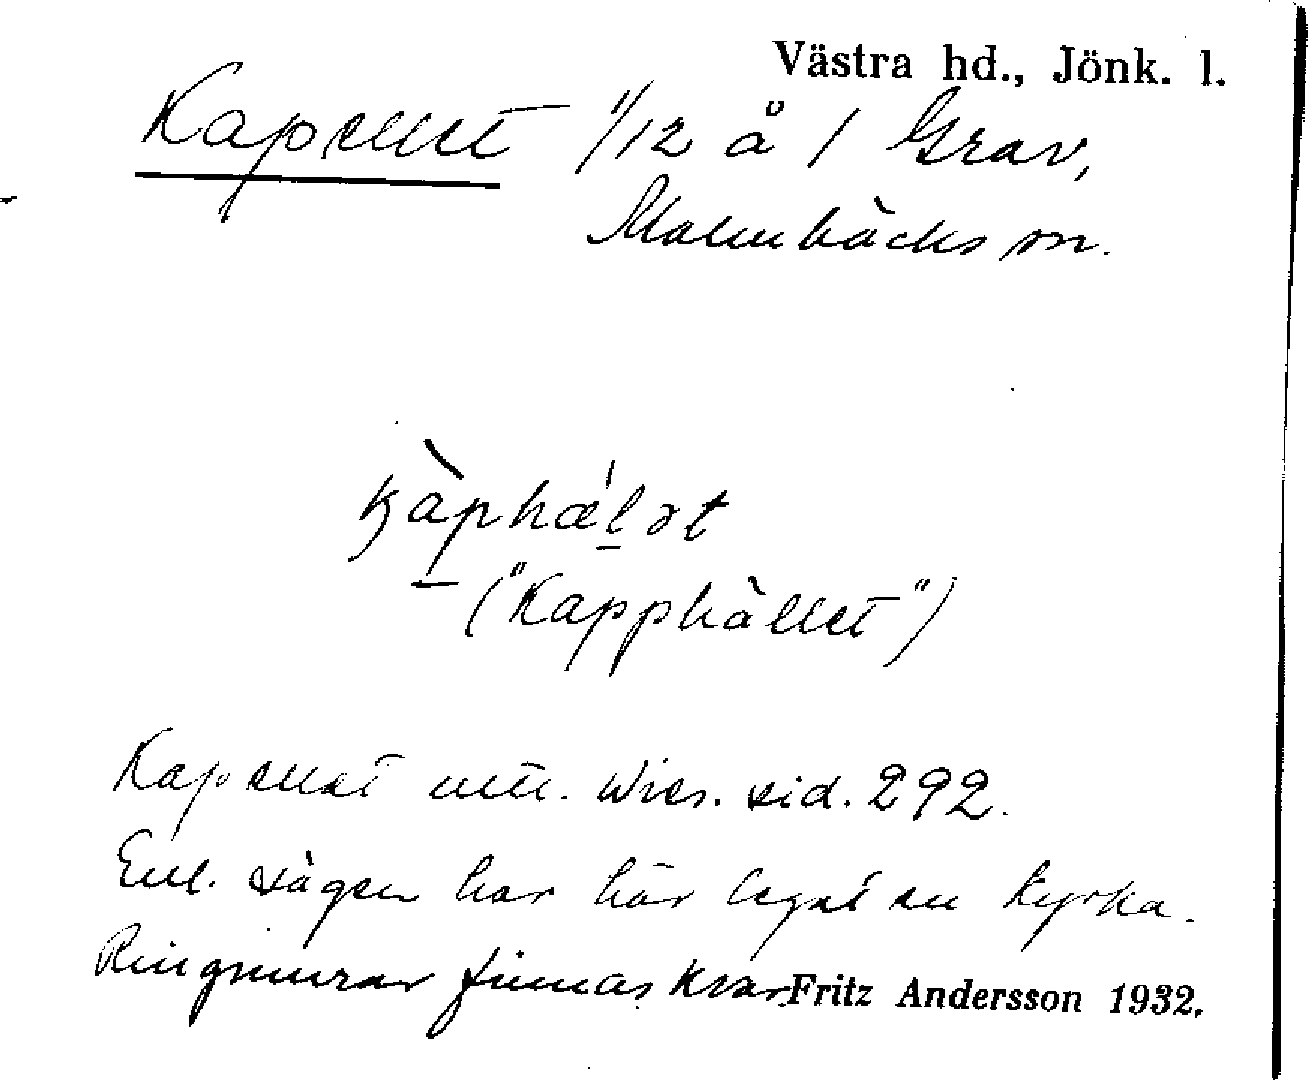 Västra hd., Jönk. l.
Kapellet 1/12 å 1 Grav,
Malmbäcks sn.
kàphæ̀lət
("Kapphället")
Kapellet Wies. sid. 292.
Enl. sägen har här legat en kyrka.
Ringmurar finnas kvar. Fritz Andersson 1932.